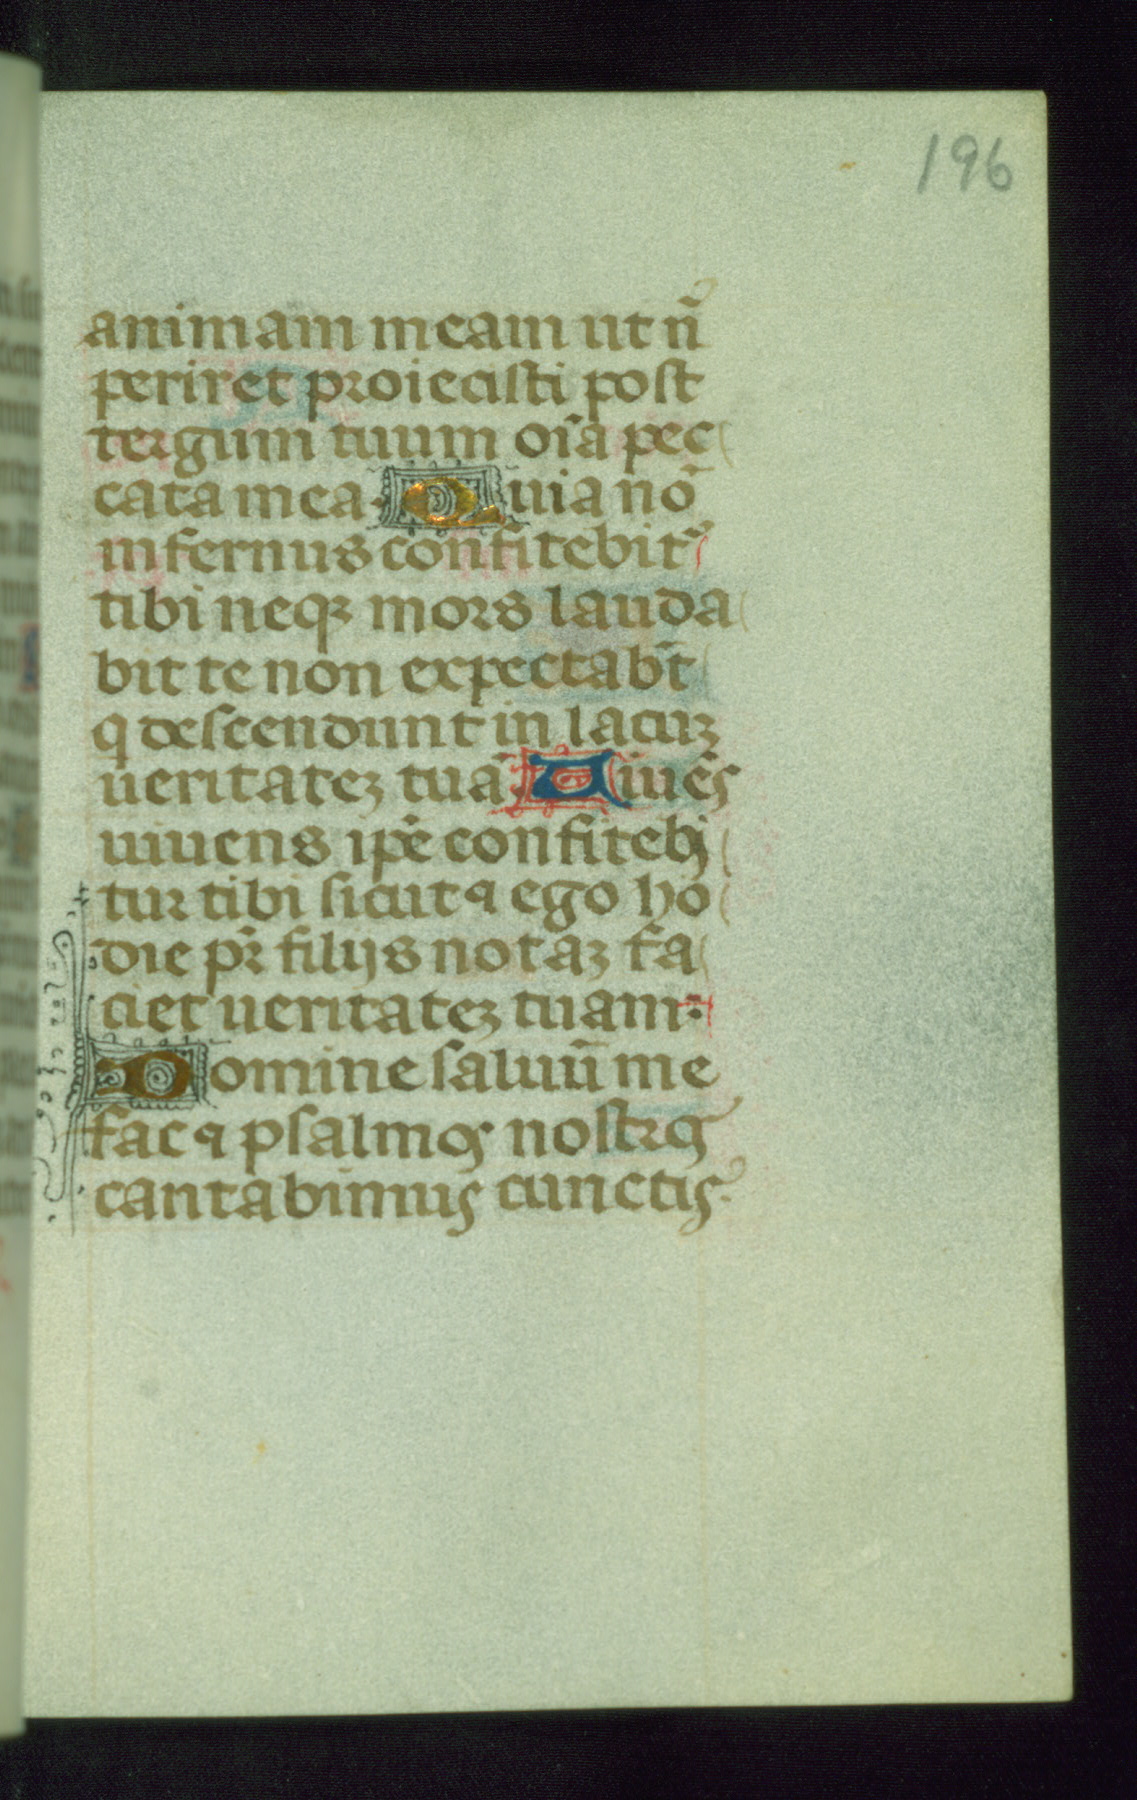 196
animam meam ut ñ
periret proiecisti post
tergum tuum oīa pec
cata mea. Quia nō
infernus confitebit᷑
tibi neqꝫ mors lauda
bit te non expectab̄t
q descendunt in lacuꝫ
ueritateꝫ tuā. Uiuēs
uiuens ip̄e confitebi
tur tibi sicut ⁊ ego ho
die pr̄ filijs notaꝫ fa
ciet ueritateꝫ tuam:
Domine saluū me
fac ⁊ psalmos nostros
cantabimus cunctis.